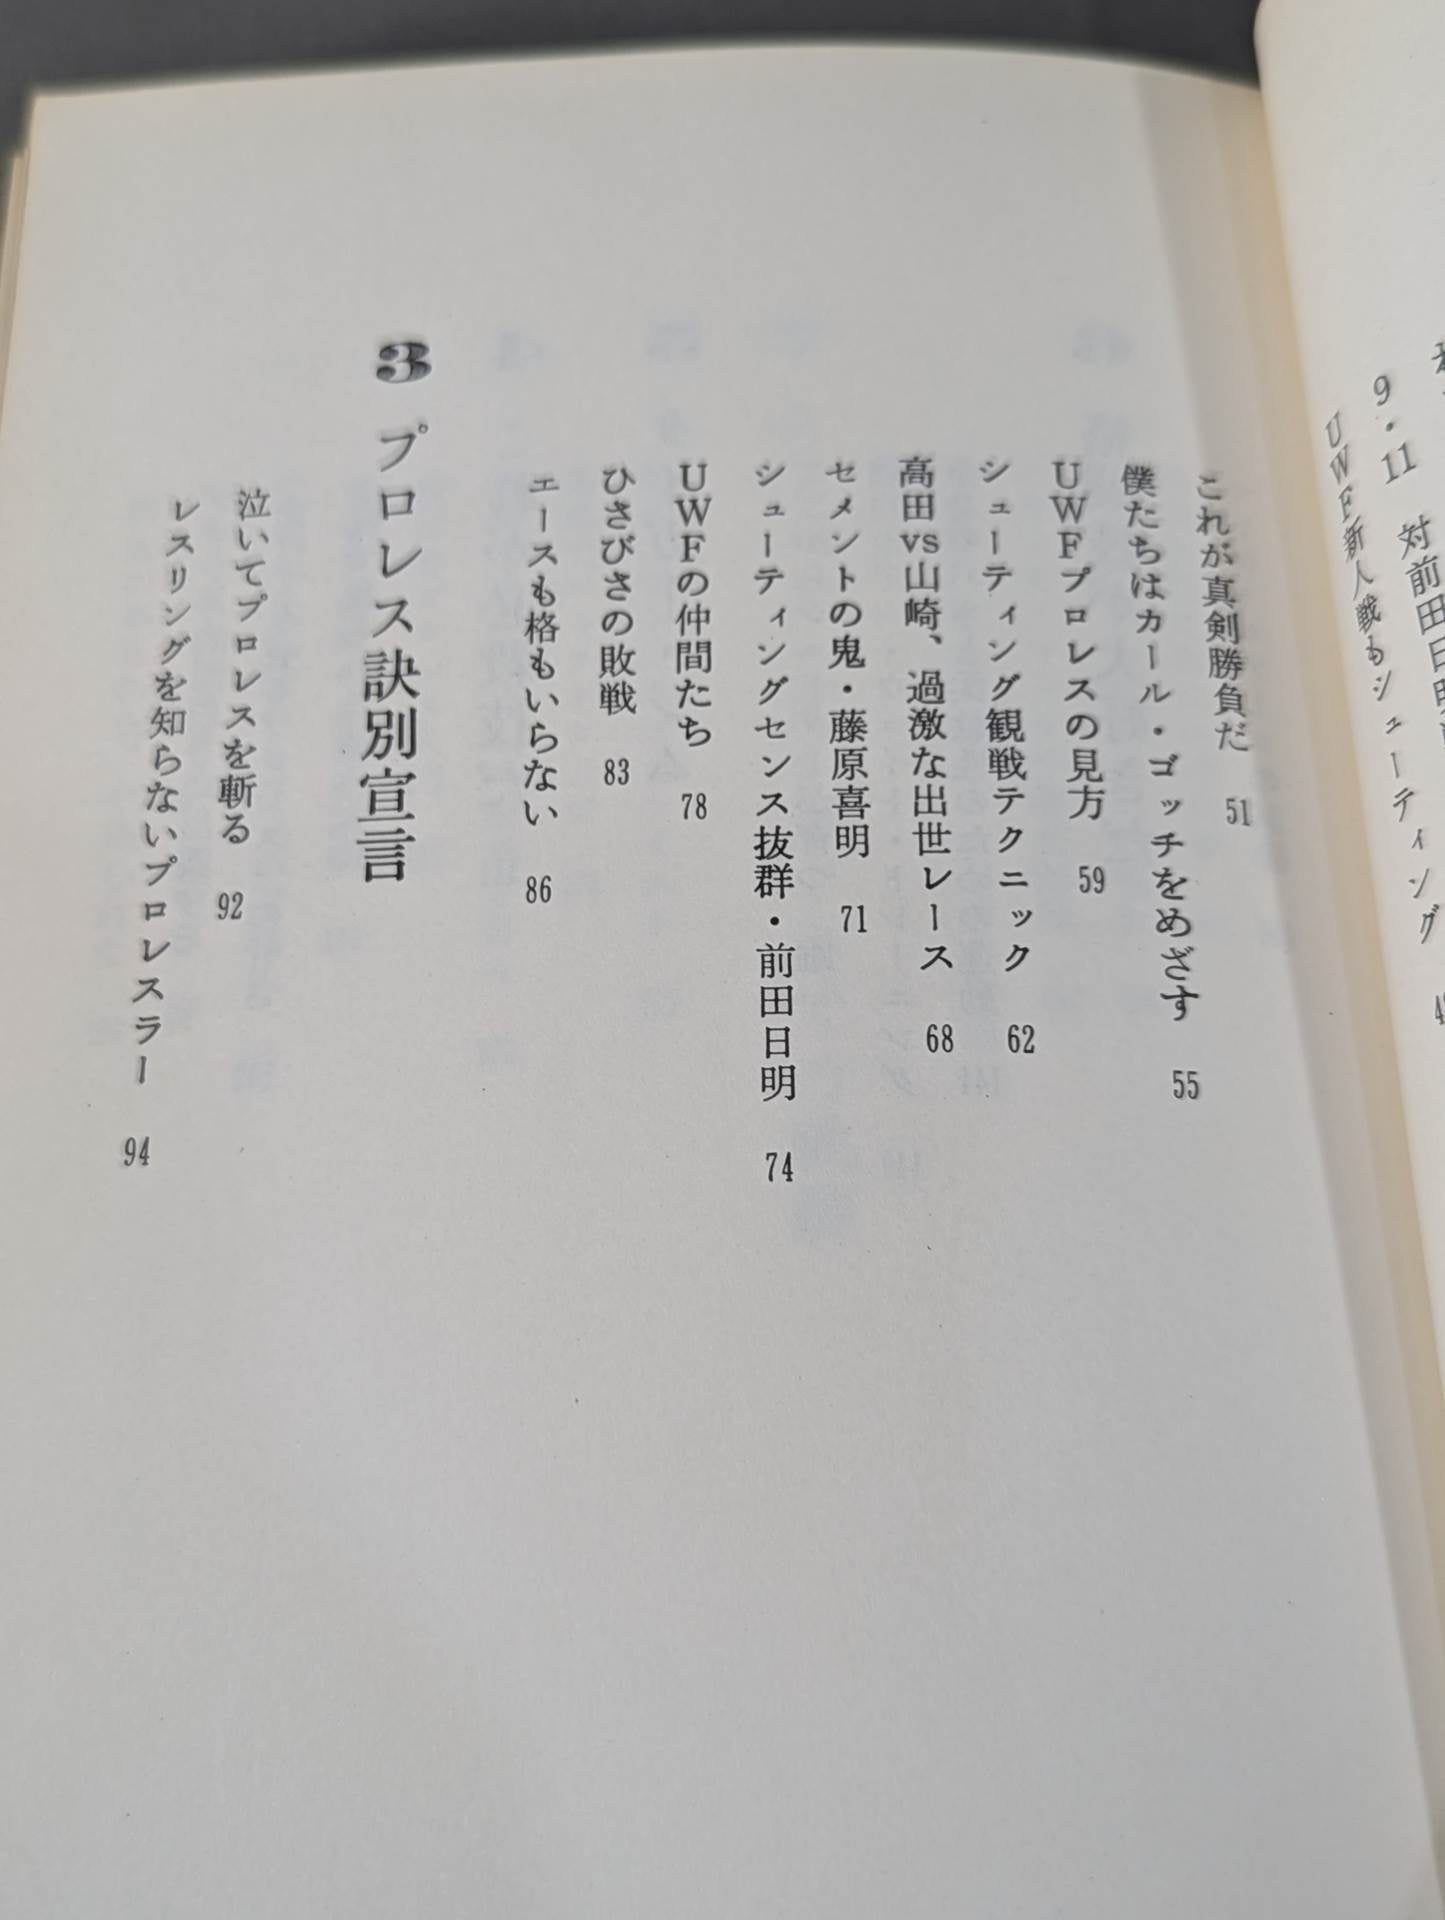 9・11 対前田日明
UWF新人戦もシューティング
これが真剣勝負だ 51
僕たちはカール・ゴッチをめざす 55
UWFプロレスの見方 59
シューティング観戦テクニック 62
高田vs山崎、過激な出世レース 68
セメントの鬼・藤原喜明 71
シューティングセンス抜群・前田日明 74
UWFの仲間たち 78
ひさびさの敗戦 83
エースも格もいらない 86
3 プロレス訣別宣言
泣いてプロレスを斬る 92
レスリングを知らないプロレスラー 94